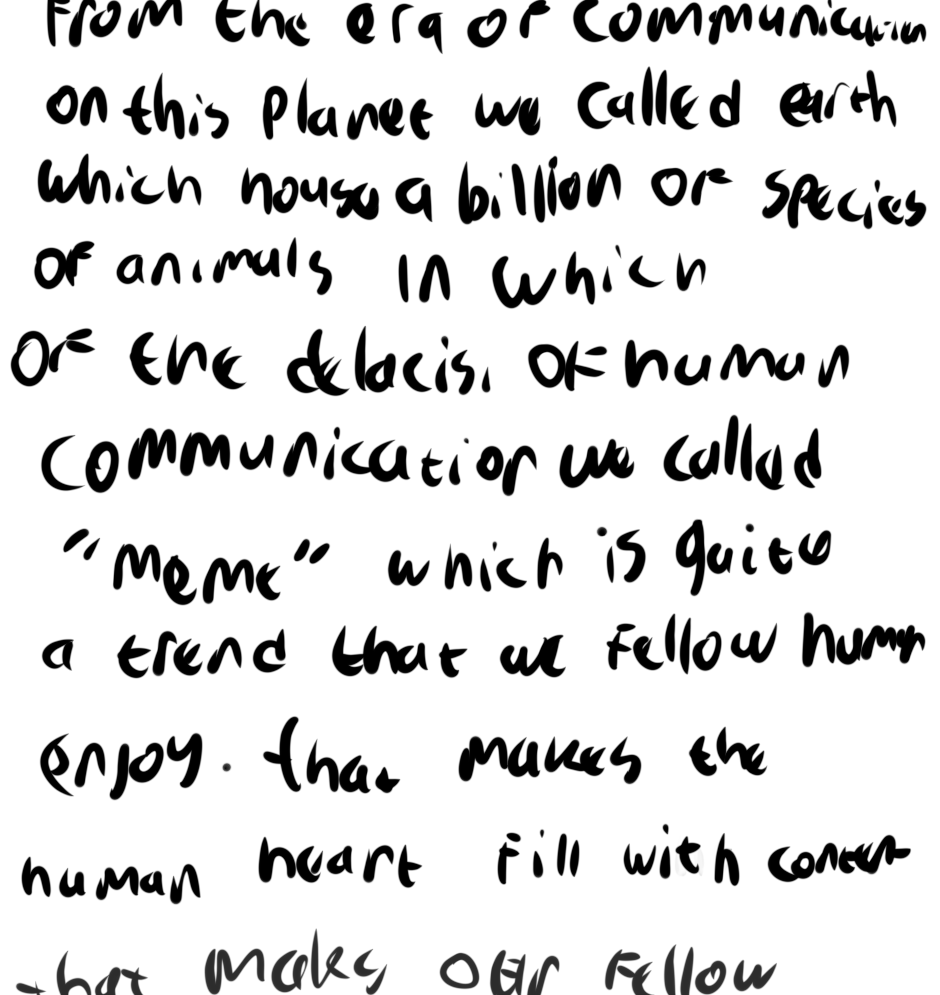 From the era of communication
on this planet we called earth
which house a billion of species
of animals in which
of the delacis. of human
communication we called
"Meme" which is quite
a trend that we fellow human
enjoy. that makes the
human heart fill with content
that makes our fellow